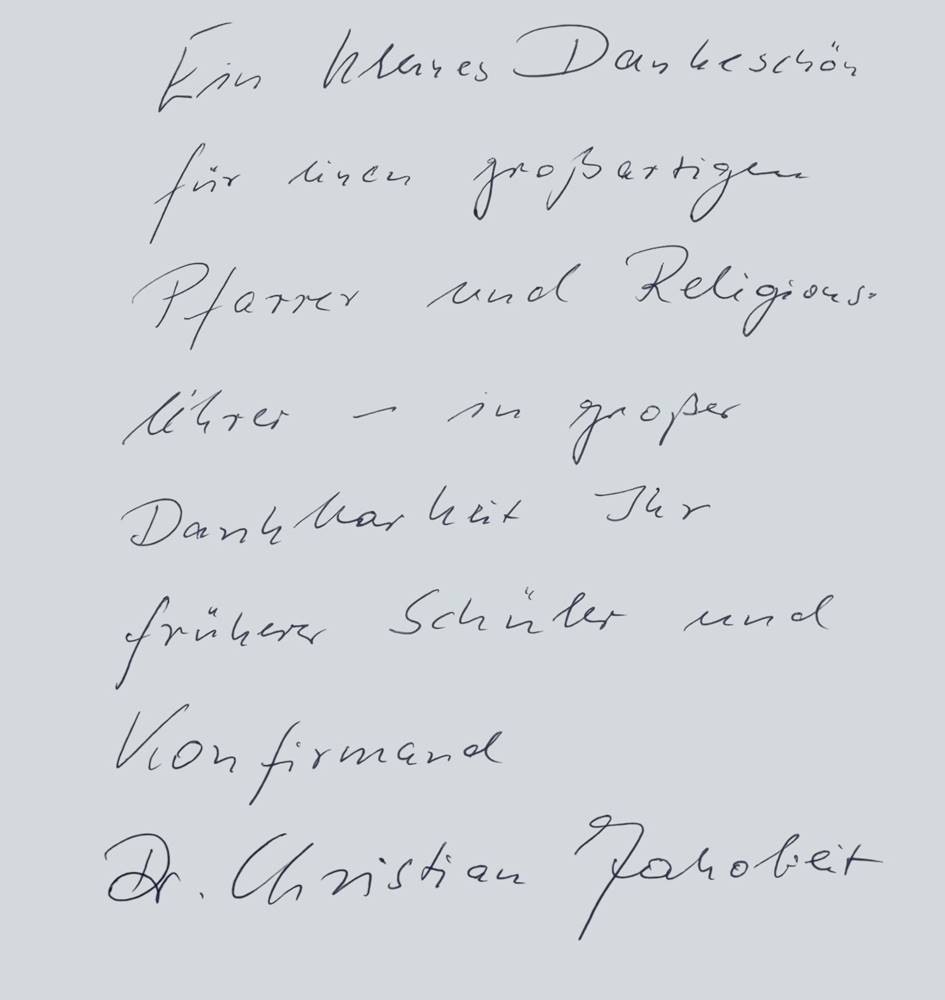 Ein kleines Dankeschön
für einen großartigen
Pfarrer und Religions-
lehrer – in großer
Dankbarkeit Ihr
früherer Schüler und
Konfirmand
Dr. Christian Jakobeit